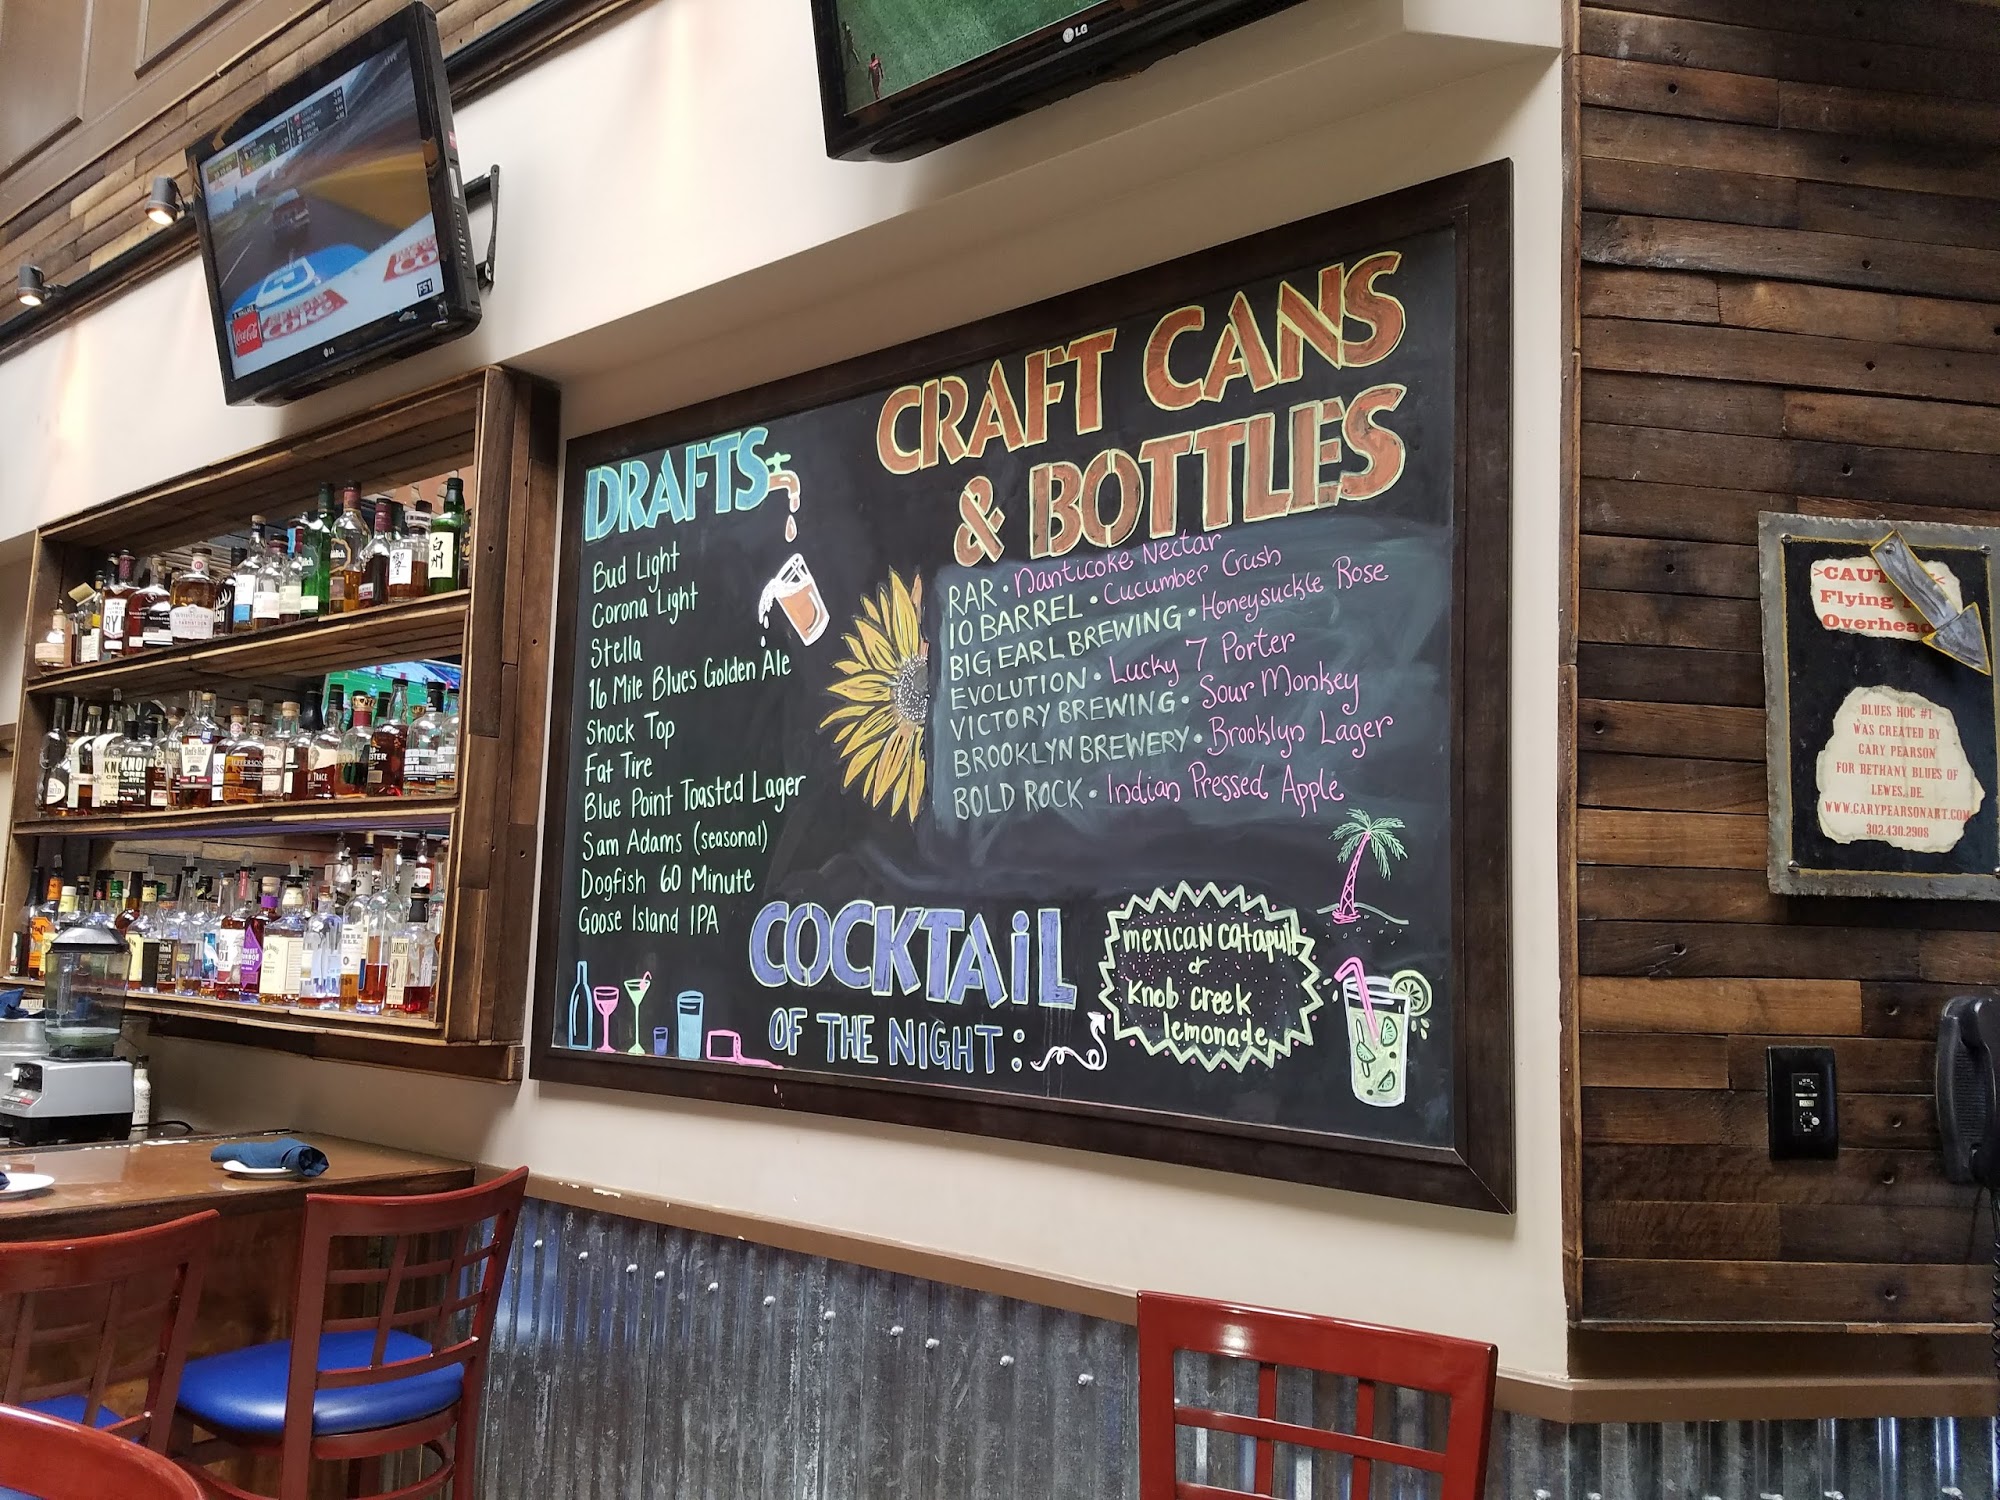 LIVE
Coca-Cola
Coke
FS1
LG
LG
DRAFTS
Bud Light
Corona Light
Stella
16 Mile Blues Golden Ale
Shock Top
Fat Tire
Blue Point Toasted Lager
Sam Adams (seasonal)
Dogfish 60 Minute
Goose Island IPA
CRAFT CANS
& BOTTLES
RAR • Nanticoke Nectar
10 BARREL • Cucumber Crush
BIG EARL BREWING • Honeysuckle Rose
EVOLUTION • Lucky 7 Porter
VICTORY BREWING • Sour Monkey
BROOKLYN BREWERY • Brooklyn Lager
BOLD ROCK • Indian Pressed Apple
COCKTAiL
OF THE NIGHT:
mexican catapult
or
Knob creek
lemonade
>CAUT
Flying
Overhead
BLUES HOG #1
WAS CREATED BY
CARY PEARSON
FOR BETHANY BLUES OF
LEWES, DE.
WWW.CARYPEARSONART.COM
302.430.2908